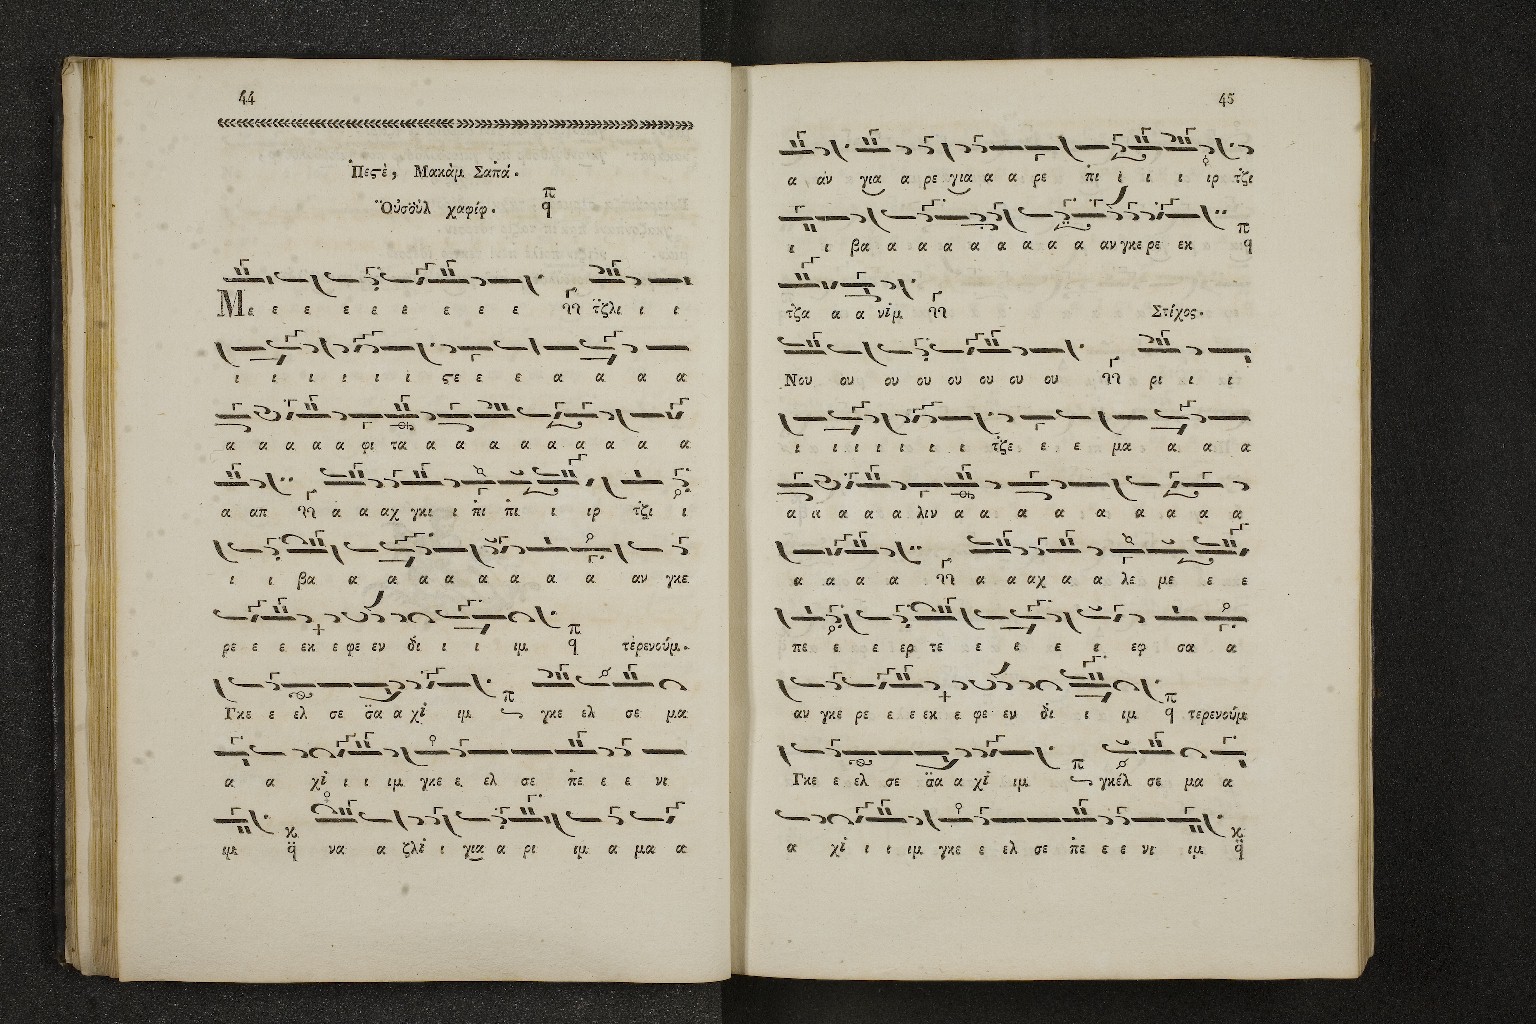 44
Πεςὲ, Μακὰμ Σαπά.
Οὐσοὺλ χαφίφ. π
q
Με ε ε ε ε ε ε ε ε ε τζλι ι ι
ι ι ι ι ι ι ςε ε ε α α α α
α α α α α φι τα α α α α α α α α α
α απ α α αχ γκι ι πι πι ι ιρ τζι ι
ι ι βα α α α α α α α α αν γκε
ρε ε ε εκ ε φε εν δι ι ι ιμ q τερενούμ.
Γκε ε ελ σε σα α χὶ ιμ π γκε ελ σε μα
α α χὶ ι ι ιμ γκε ε ελ σε πε ε ε νι
ιμ q να α ζλὶ ι για α ρι ιμ α μα α
45
α αν για α ρε για α α ρε πι ι ι ι ιρ τζι
ι ι βα α α α α α α α α αν γκε ρε εκ q
τζα α α νίμ Στίχος.
Νου ου ου ου ου ου ου ου ρι ι ι
ι ι ι ι ι ι τζε ε ε μα α α α
α α α α α λιν α α α α α α α α α
α α α α α α αχ α α λε με ε ε
πε ε ε ερ τε ε ε ε ε εφ σα α
αν γκε ρε ε ε εκ ε φε εν δι ι ιμ q τερενούμ
Γκε ε ελ σε σα α χὶ ιμ π γκέλ σε μα α
α χὶ ι ι ιμ γκε ε ελ σε πε ε ε νι ιμ q